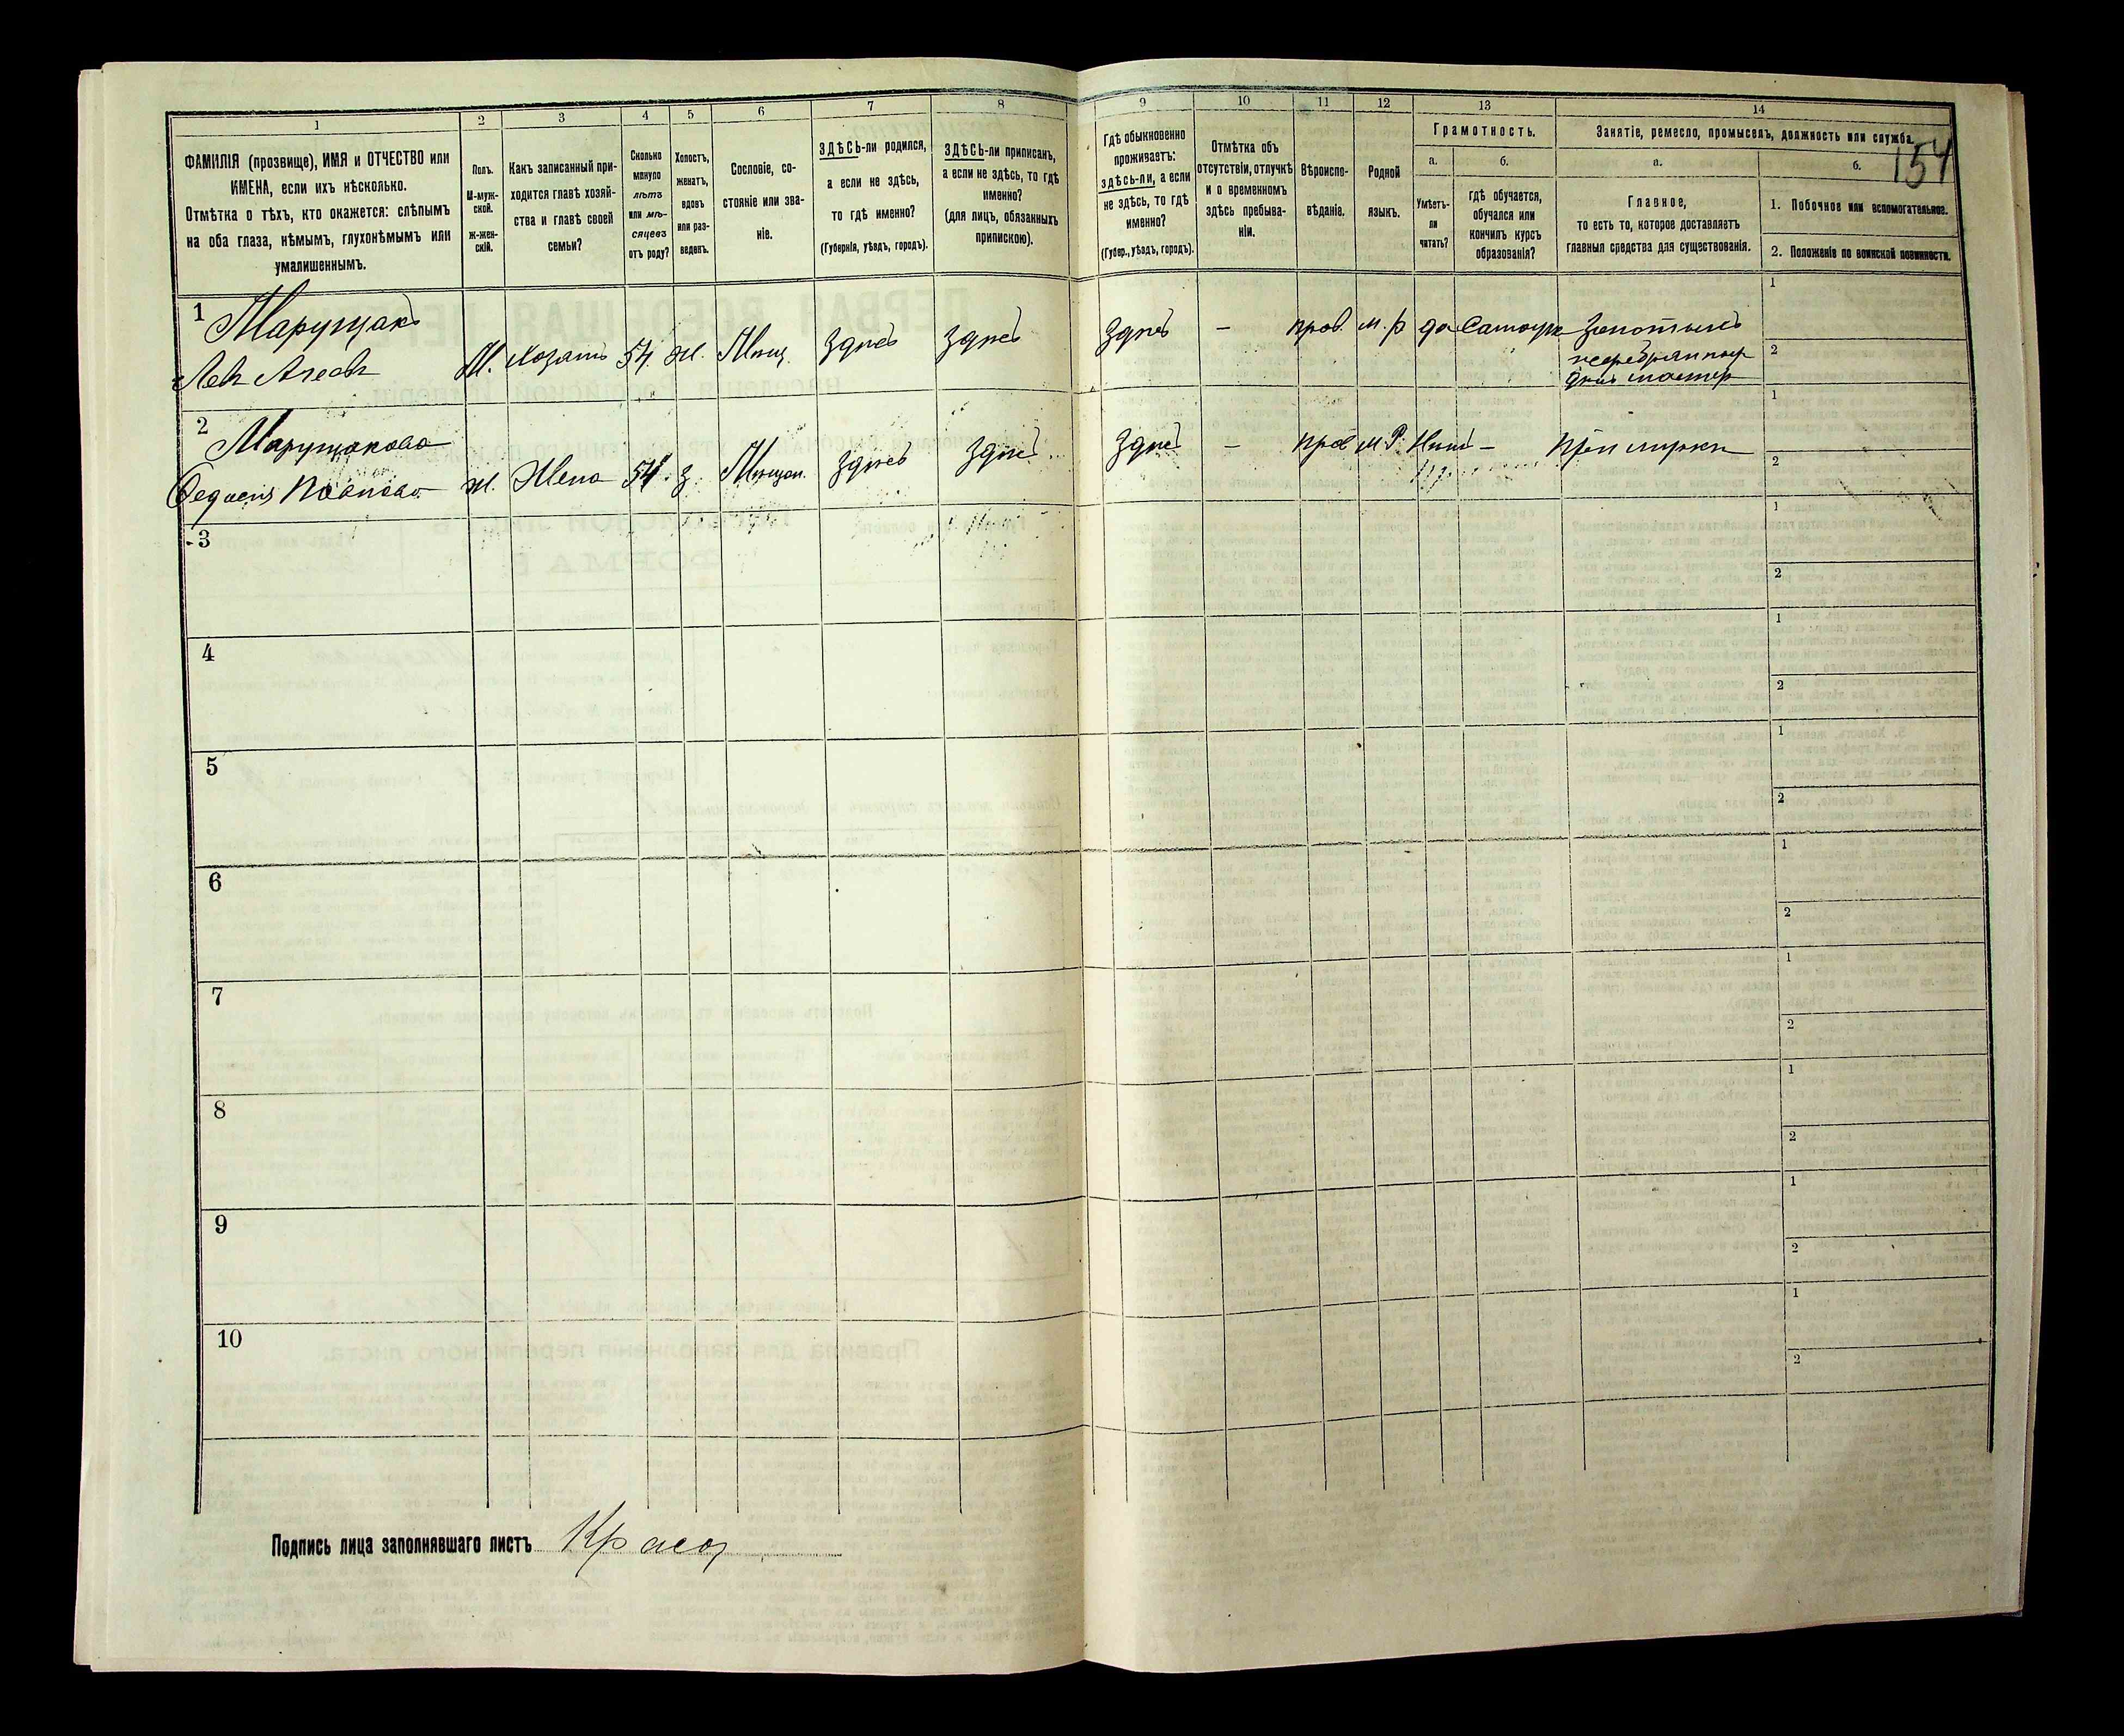 1 2 3 4 5 6 7 8 9 10 11 12 13 14
154
ФАМИЛІЯ (прозвище), ИМЯ и ОТЧЕСТВО или
ИМЕНА, если ихъ нѣсколько.
Отмѣтка о тѣхъ, кто окажется: слѣпымъ
на оба глаза, нѣмымъ, глухонѣмымъ или
умалишеннымъ.
Полъ.
М-муж-
ской.
ж-жен-
скій.
Какъ записанный при-
ходится главѣ хозяй-
ства и главѣ своей
семьи?
Сколько
минуло
лѣтъ
или мѣ-
сяцевъ
отъ роду?
Холостъ,
женатъ,
вдовъ
или раз-
веденъ.
Сословіе, со-
стояніе или зва-
ніе.
ЗДѢСЬ-ли родился,
а если не здѣсь,
то гдѣ именно?
(Губернія, уѣздъ, городъ).
ЗДѢСЬ-ли приписанъ,
а если не здѣсь, то гдѣ
именно?
(для лицъ, обязанныхъ
припискою).
Гдѣ обыкновенно
проживаетъ:
здѣсь-ли, а если
не здѣсь, то гдѣ
именно?
(Губер., уѣздъ, городъ).
Отмѣтка объ
отсутствіи, отлучкѣ
и о временномъ
здѣсь пребыва-
ніи.
Вѣроиспо-
вѣданіе.
Родной
языкъ.
Грамотность.
а.
Умѣетъ-
ли
читать?
б.
гдѣ обучается,
обучался или
кончилъ курсъ
образованія?
Занятіе, ремесло, промыселъ, должность или служба.
а.
Главное,
то есть то, которое доставляетъ
главныя средства для существованія.
б.
1. Побочное или вспомогательное.
2. Положеніе по воинской повинности.
1 Марущакъ
М. Хозяинъ 54. ж. Мѣщ. Здѣсь Здѣсь Здѣсь – прав. м. р да Самоуч
мастер
1
2
2 Марущакова
ж. Жена 54. з. Мѣщан. Здѣсь Здѣсь Здѣсь – прав м. Р. Нѣтъ – При мужѣ
1
2
3
1
2
4
1
2
5
1
2
6
1
2
7
1
2
8
1
2
9
1
2
10
1
2
Подпись лица заполнявшаго листъ